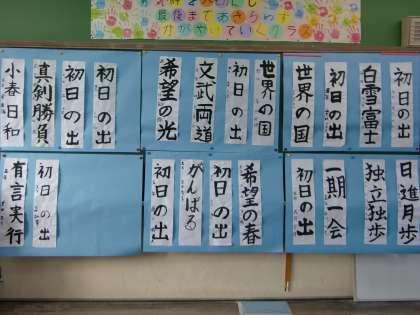 最後まであきらめず
かがやいていくクラス
小春日和
真剣勝負
初日の出
初日の出
希望の光
文武両道
初日の出
世界の国
世界の国
初日の出
白雪富士
初日の出
有言実行
初日の出
初日の出
がんばる
初日の出
希望の春
初日の出
一期一会
独立独歩
日進月歩